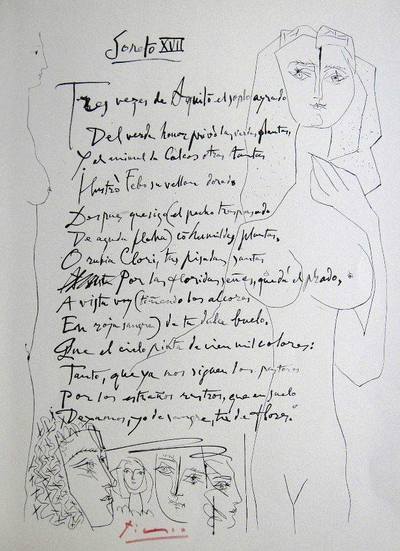 Soneto XVII
Tres vezes de Aquilō el soplo ayrado
Del verde honor privó las verdes plantas,
Y al animal de Colcos otras tantas
Ilustró Febo su vellon dorado
Despues que sigo (el pecho traspasado
De aguda flecha) cō humildes plantas,
O rubia Clori, tus pisadas santas
Por las floridas señas, que da el prado,
A vista voy (tiñendo los alcores
En roja sangre) de tu dulce buelo.
Que el cielo pinta de cien mil colores:
Tanto, que ya nos siguen los pastores
Por los estraños rastros, que en suelo
Dexamos, yo de sangre, tu de flores.
Picasso